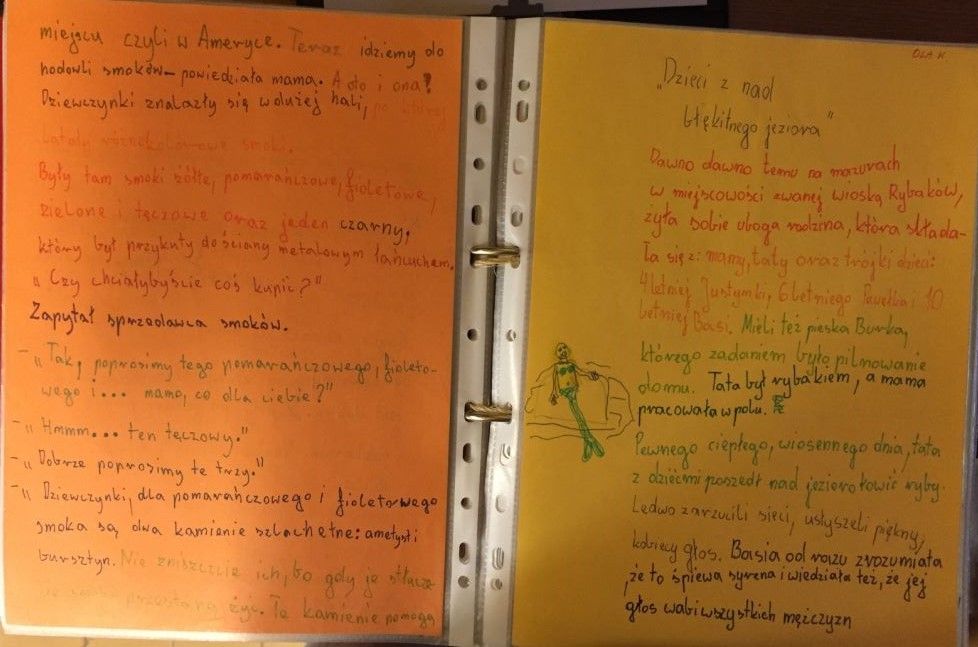 miejscu czyli w Ameryce. Teraz idziemy do
hodowli smoków – powiedziała mama. A oto i ona?
Dziewczynki znalazły się w dużej hali, po której
latały różnokolorowe smoki.
Były tam smoki żółte, pomarańczowe, fioletowe,
zielone i tęczowe oraz jeden czarny,
który był przykuty do ściany metalowym łańcuchem.
„Czy chciałybyście coś kupić?"
Zapytał sprzedawca smoków.
-„Tak, poprosimy tego pomarańczowego, fioleto-
wego i... mamo, co dla ciebie?"
-„Hmmm... ten tęczowy."
-„Dobrze poprosimy te trzy."
-„Dziewczynki, dla pomarańczowego i fioletowego
smoka są dwa kamienie szlachetne: ametyst i
bursztyn. Nie zniszczcie ich, bo gdy je stłucze-
przestaną żyć. Te kamienie pomogą
OLA K.
„Dzieci z nad
błękitnego jeziora"
Dawno dawno temu na mazurach
w miejscowości zwanej wioską Rybaków,
żyła sobie uboga rodzina, która składa-
ła się z: mamy, taty oraz trójki dzieci:
4 letniej Justynki, 6 letniego Pawełka i 10
letniej Basi. Mieli też pieska Burka,
którego zadaniem było pilnowanie
domu. Tata był rybakiem, a mama
pracowała w polu.
Pewnego ciepłego, wiosennego dnia, tata
z dziećmi poszedł nad jezioro łowić ryby.
Ledwo zarzucili sieci, usłyszeli piękny,
kobiecy głos. Basia od razu zrozumiała
,że to śpiewa syrena i wiedziała też, że jej
głos wabi wszystkich mężczyzn